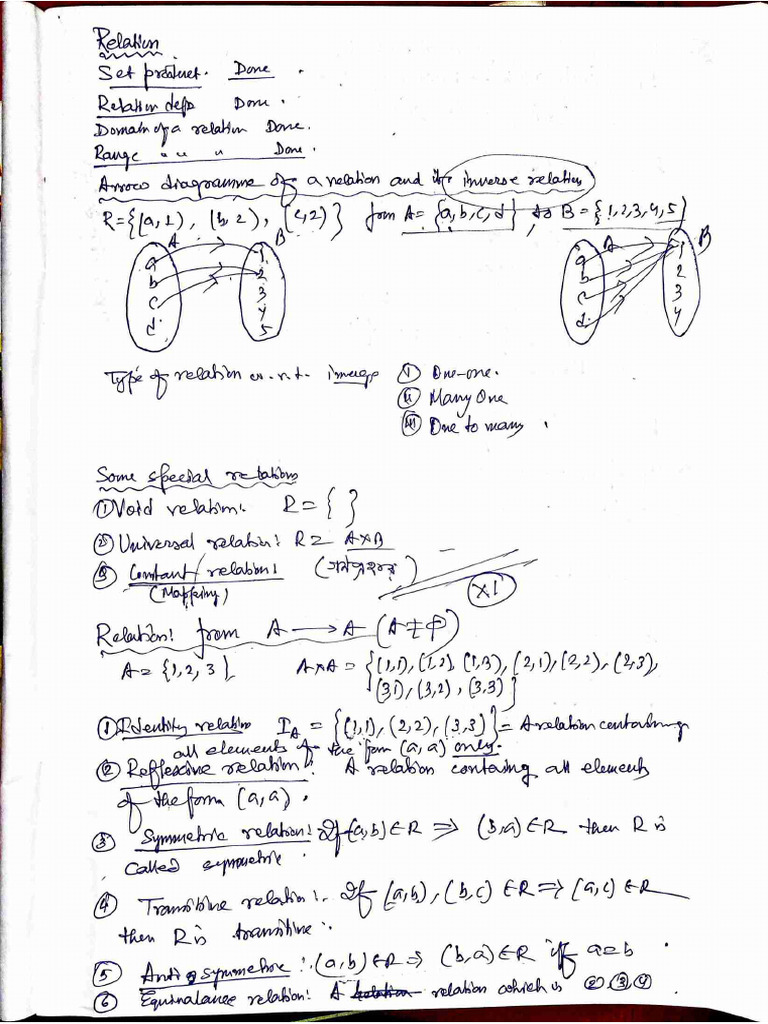 Relation
Set product. Done.
Relation defn Done.
Domain of a relation Done.
Range " " " Done.
Arrow diagramme of a relation and its inverse relation
R = {(a,1), (b,2), (c,2)} from A = {a,b,c,d} to B = {1,2,3,4,5}
A B
a 1
b 2
c 3
d 4
5
B
a 1
b 2
c 3
d 4
Type of relation w.r.t. image (i) One-one.
(ii) Many One
(iii) One to many.
Some special relations
① Void relation: R = { }
② Universal relation: R = A×B
③ Constant relation:
(Mapping)
XI
Relation: from A → A (A ≠ φ)
A = {1,2,3} A×A = {(1,1), (1,2), (1,3), (2,1), (2,2), (2,3),
(3,1), (3,2), (3,3)}
① Identity relation I_A = {(1,1), (2,2), (3,3)} = A relation containing
all elements of the form (a,a) only.
② Reflexive relation: A relation containg all elements
of the form (a,a).
③ Symmetric relation: If (a,b) ∈ R ⇒ (b,a) ∈ R then R is
called symmetric.
④ Transitive relation: If (a,b), (b,c) ∈ R ⇒ (a,c) ∈ R
then R is transitive.
⑤ Anti symmetric: (a,b) ∈ R ⇒ (b,a) ∈ R if a=b.
⑥ Equivalance relation: A relation which is ②,③,④